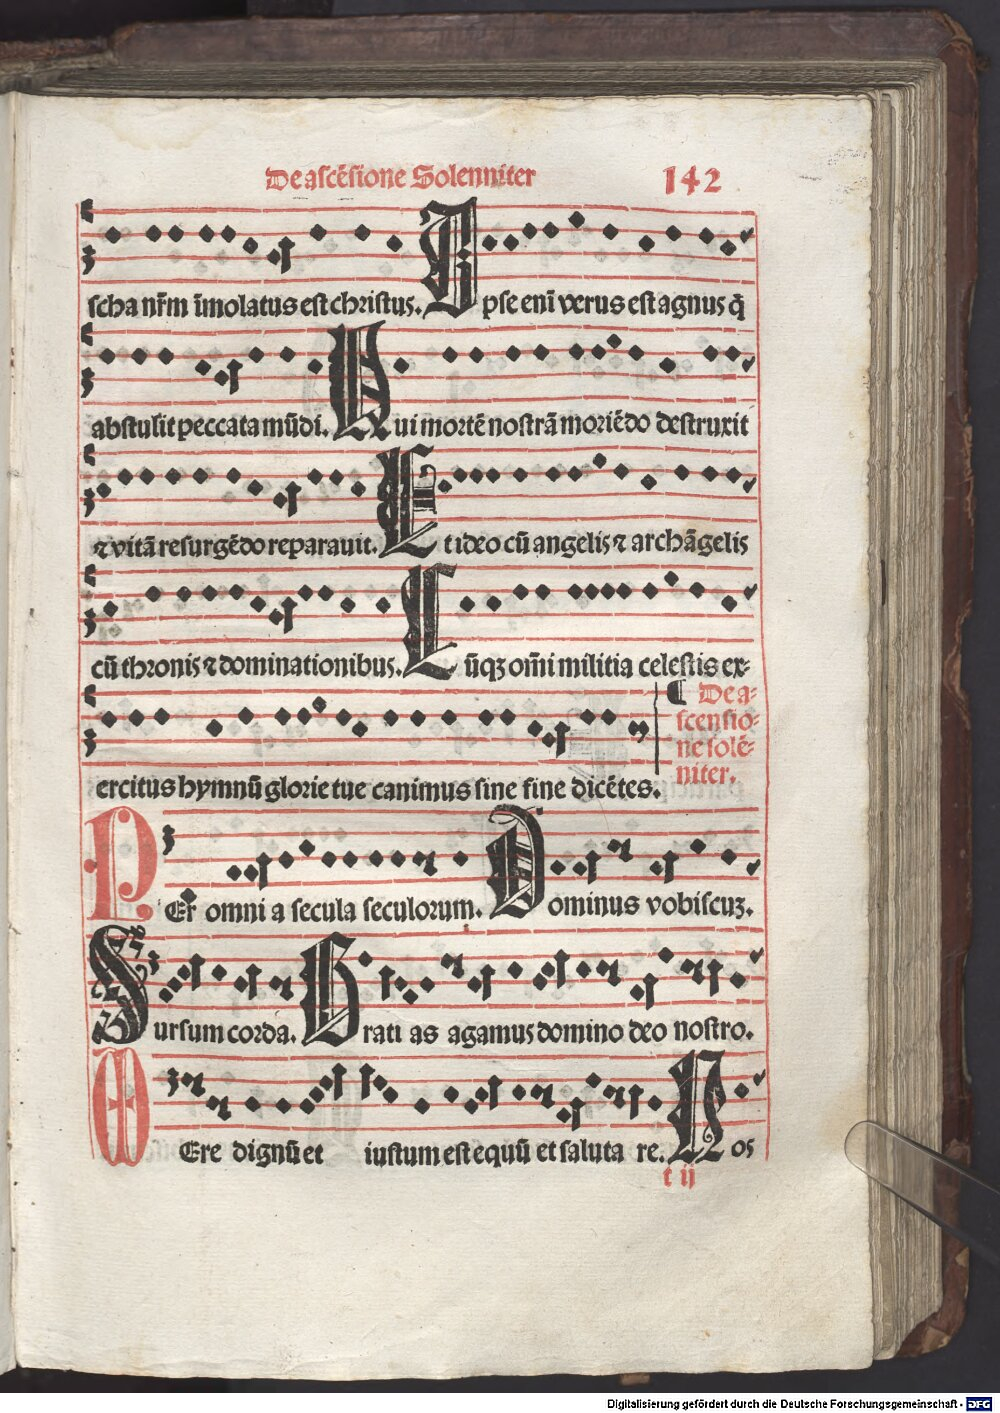 De ascẽsione Solenniter 142
scha nr̃m ĩmolatus est christus. Ipse enĩ verus est agnus q̃
abstulit peccata mũdi. Qui mortẽ nostrã moriẽdo destruxit
⁊ vitã resurgẽdo reparauit. Et ideo cũ angelis ⁊ archãgelis
cũ thronis ⁊ dominationibus. Cũqꝫ om̃i militia celestis ex-
ercitus hymnũ glorie tue canimus sine fine dicẽtes.
¶ De a-
scensio-
ne solẽ-
niter.
PEr omni a secula seculorum. Dominus vobiscuꝫ.
Sursum corda. Grati as agamus domino deo nostro.
VEre dignũ et iustum est equũ et saluta re. Nos
t ij
Digitalisierung gefördert durch die Deutsche Forschungsgemeinschaft - DFG